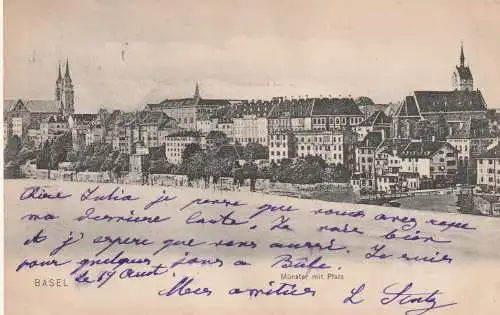 Chère Julia je pense que vous avez reçue
ma dernière carte. Je vais bien
et j'espère que vous aussi. Je suis
pour quelques jours à Bâle.
BASEL
Münster mit Pfalz
le 5/ Août.
Mes amitiés